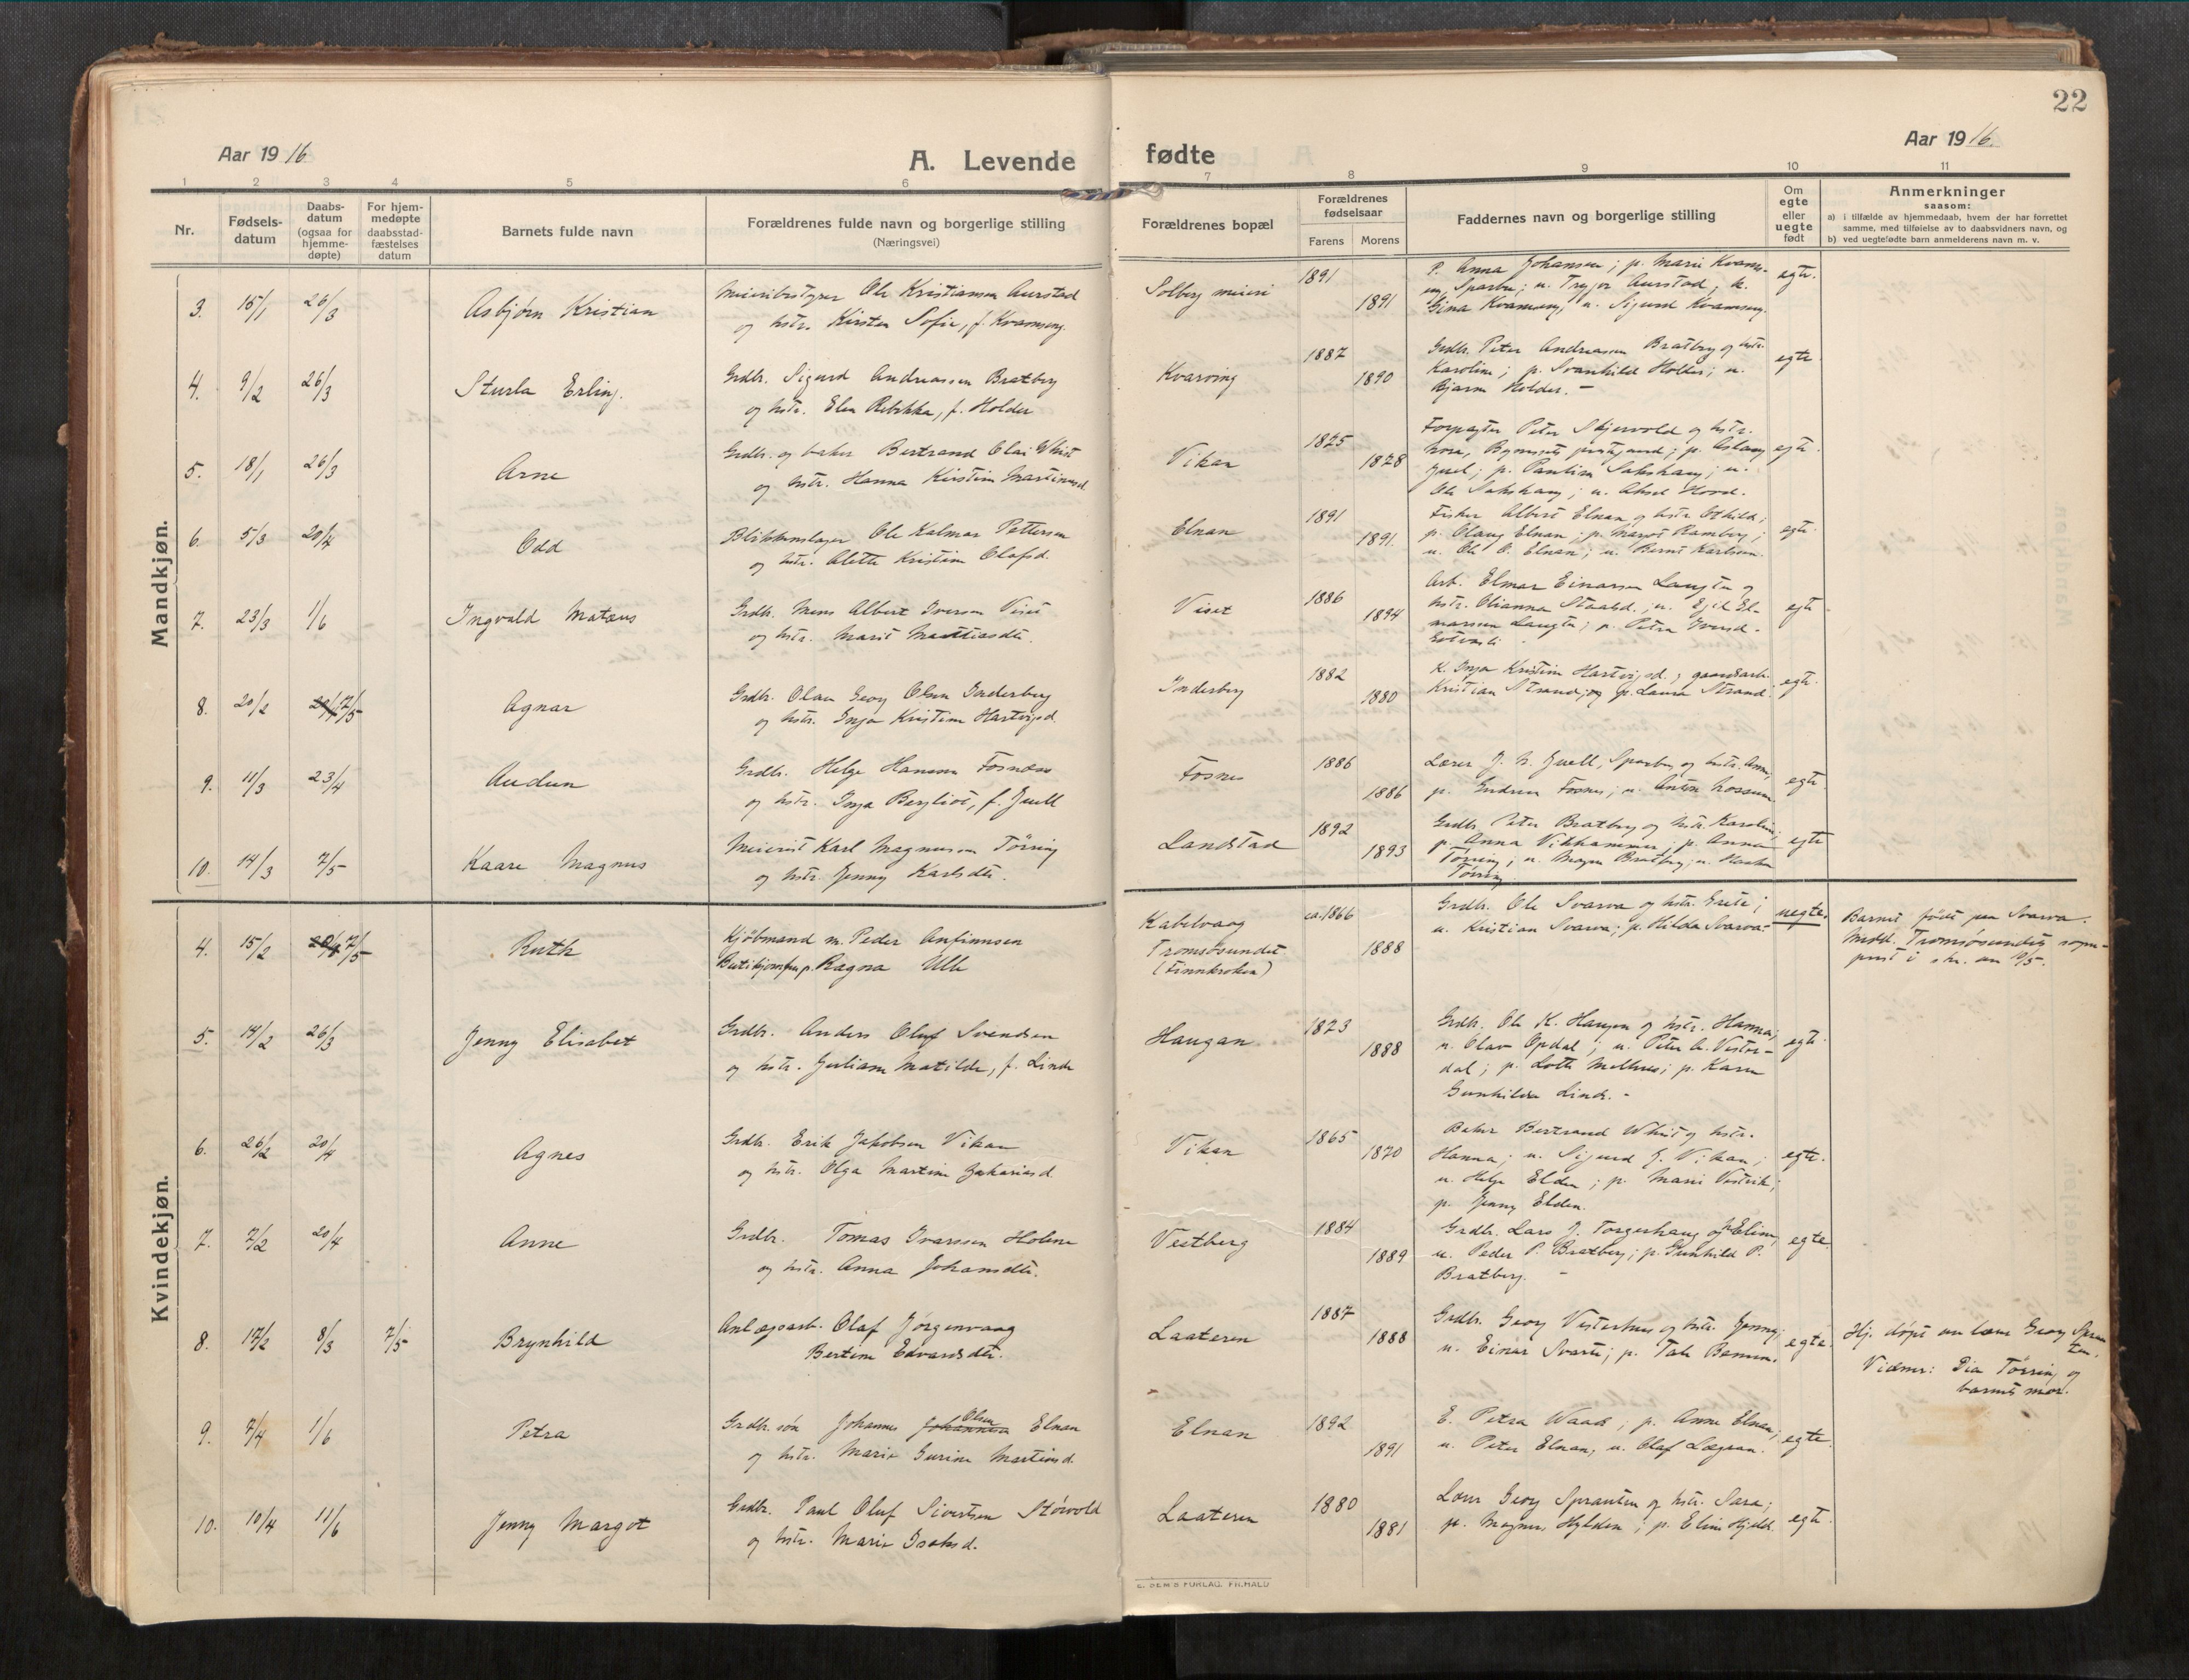 22
Aar 1916
A. Levende
fødte
Aar 1916.
1 2 3 4 5 6 7 8 9 10 11
Nr.
Fødsels-
datum
Daabs-
datum
(ogsaa for
hjemme-
døpte)
For hjem-
medøpte
daabsstad-
fæstelses
datum
Barnets fulde navn
Forældrenes fulde navn og borgerlige stilling
(Næringsvei)
Forældrenes bopæl
Forældrenes
fødselsaar
Farens
Morens
Faddernes navn og borgerlige stilling
Om
egte
eller
uegte
født
Anmerkninger
saasom:
a) i tilfælde av hjemmedaab, hvem der har forrettet
samme, med tilføielse av to daabsvidners navn, og
b) ved uegtefødte barn anmelderens navn m. v.
Mandkjøn.
3. 15/1 26/3 Asbjørn Kristian
Meieribestyrer Ole Kristiansen Aurstad
og hstr. Kirsten Sofie, f. Kvamseng.
Solberg meieri 1891 1891
P. Anna Johansen; p. Marie Kvams-
eng, Sparbu; u. Trygve Aurstad; k.
Gina Kvamseng; u. Sigurd Kvamseng.
egte.
4. 9/2 26/3 Sturla Erling.
Grdbr. Sigurd Andreassen Bratberg
og hstr. Elen Rebekka, f. Holder
Kvarving 1887 1890
Grdbr. Peter Andreassen Bratberg og hstr.
Karoline; p. Svanhild Holder; u.
Bjarne Holder. -
egte
5. 18/1 26/3 Arne
Grdbr. og baker Bertrand Olai Whist
og hstr. Hanna Kirstine Martinusd.
Vikan 1875 1878
Forpagter Peter Skjervold og hstr.
p. Aslaug
Juel; p. Pauline Sakshaug; u.
Ole Sakshaug; u. Aksel Hovd.
egte.
6. 5/3 20/4 Odd
Blikkenslager Ole Kalmar Pettersen
og hstr. Alette Kristine Olafsd.
Elnan 1891 1891.
Fisker Albert Elnan og hstr. Othilde;
p. Olaug Elnan; p. Margot Ramberg;
u. Ole O. Elnan; u. Bernt Karlsen.
egte.
7. 23/3 1/6 Ingvald Mataus
Grdbr. Mons Albert Iversen Viset
og hstr. Marit Mattiasdtr.
Viset 1886 1894
Arb. Elmar Einarsen Langte og
hstr. Olianna Staalsd.; u. Egil El-
marsen Langte; p. Petra Iversd.
egte
8. 20/2 7/5 Agnar
Grdbr. Olav Georg Olsen Inderberg
og hstr. Inga Kristine Hartvigsd.
Inderberg 1882 1880
K. Inga Kristine Hartvigsd.; gaardsarb.
Kristian Strand; og p. Laura Strand.
egte.
9. 11/3 23/4 Audun
Grdbr. Helge Hansen Fosnæs
og hstr. Inga Bergliot, f. Juell
Fosnes 1886 1886
Lærer J. N. Juell, Sparbu, og hstr. Anna;
p. Gudrun Fosnes; u. Anton Mossum.
egte.
10. 14/3 7/5 Kaare Magnus
Meierist Karl Magnussen Tørring
og hstr. Jenny Karlsdtr.
Landstad 1892 1893
Grdbr. Peter Bratberg og hstr. Karoline;
p. Anna Vikhammer; p. Anna
Tørring; u. Magne Bratberg; u. Haakon
Tørring
egte
Kvindekjøn.
4. 15/2 7/5 Ruth
Kjøbmand m. Peder Anfinnsen
p. Ragna Ulle
Kabelvaag
Tromsøsundet
(Finnkroken)
ca. 1866 1888
Grdbr. Ole Svarva og hstr. Grete;
u. Kristian Svarva; p. Hilda Svarva.
uegte.
Barnet født paa Svarva.
Medd. Tromsøsundets sogne-
prest i skr. av 9/5.
5. 14/2 26/3 Jenny Elisabet
Grdbr. Anders Oluf Svendsen
og hstr. Juliane Matilde, f. Linde
Haugan 1873 1888
Grdbr. Ole K. Haugen og hstr. Hanna;
u. Olav Opdal; u. Peter A. Vester-
dal; p. Lotte Melhus; p. Karen
Gunhilda Linde. -
egte.
6. 26/2 20/4 Agnes
Grdbr. Erik Jakobsen Vikan
og hstr. Olga Martine Zakariasd.
Vikan 1865 1870
Baker Bertrand Whist og hstr.
Hanna; u. Sigurd E. Vikan;
u. Helge Elden; p. Marie Vestvik;
p. Jenny Elden.
egte.
7. 7/2 20/4 Anne
Grdbr. Tomas Ivarsen Holme
og hstr. Anna Johansdtr.
Vestberg 1884 1889
Grdbr. Lars J. Torgerhaug og p. Eline;
u. Peder P. Bratberg; p. Gunhild P.
Bratberg. -
egte.
8. 17/2 8/3 7/5 Brynhild
Anlægsarb. Olaf Jørgenvaag
Bertine Edvardsdtr.
Laateren 1887 1888
Grdbr. Georg Vesterhus og hstr. Jenny;
u. Einar Svarte; p. Tale
egte.
Hj. døpt av lærer Georg Spran-
ten.
Vidner: Pia Tørring og
barnets mor.
9. 7/4 1/6 Petra
Olsen
Grdbr.søn Johannes Johannesen Elnan
og hstr. Marie Gurine Martinsd.
Elnan 1892 1891
E. Petra Waade; p. Anne Elnan;
u. Peter Elnan; u. Olaf Lægran.
egte.
10. 10/4 11/6 Jenny Margot
Grdbr. Paul Oluf Sivertsen Størvold
og hstr. Marie Isaksd.
Laateren 1880 1881
Lærer Georg Spranten og hstr. Sara;
p. Magnus Hylden; p. Eline Hylld.
egte.
FORLAG. FR. HALD